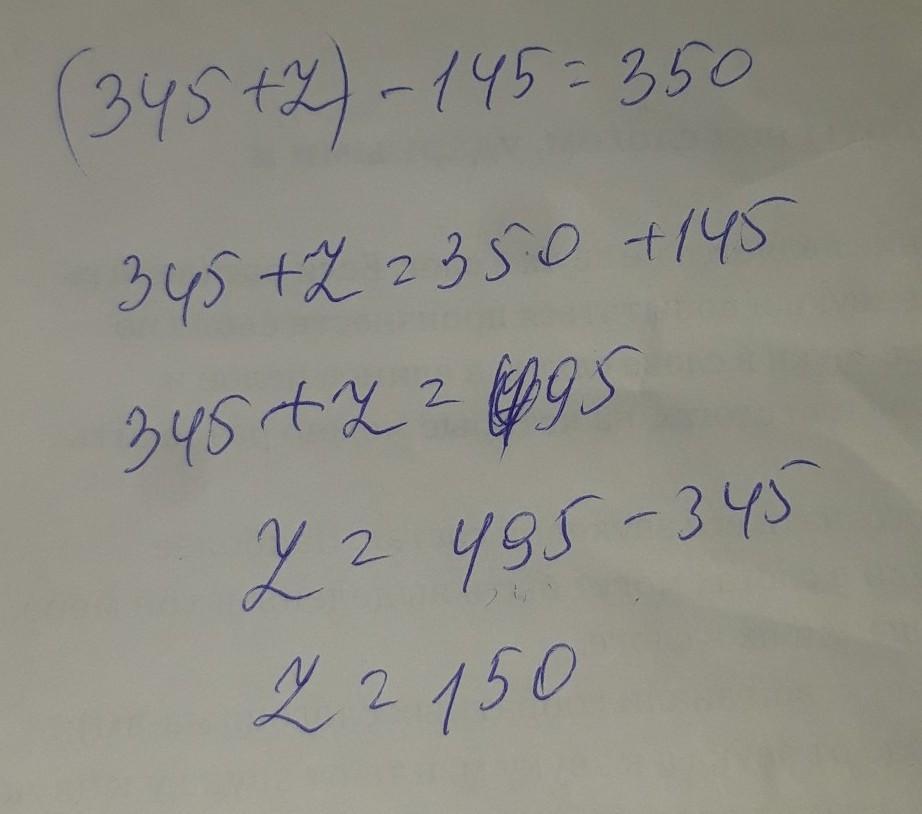 (345+z)-145=350
345+z=350+145
345+z=495
z=495-345
z=150